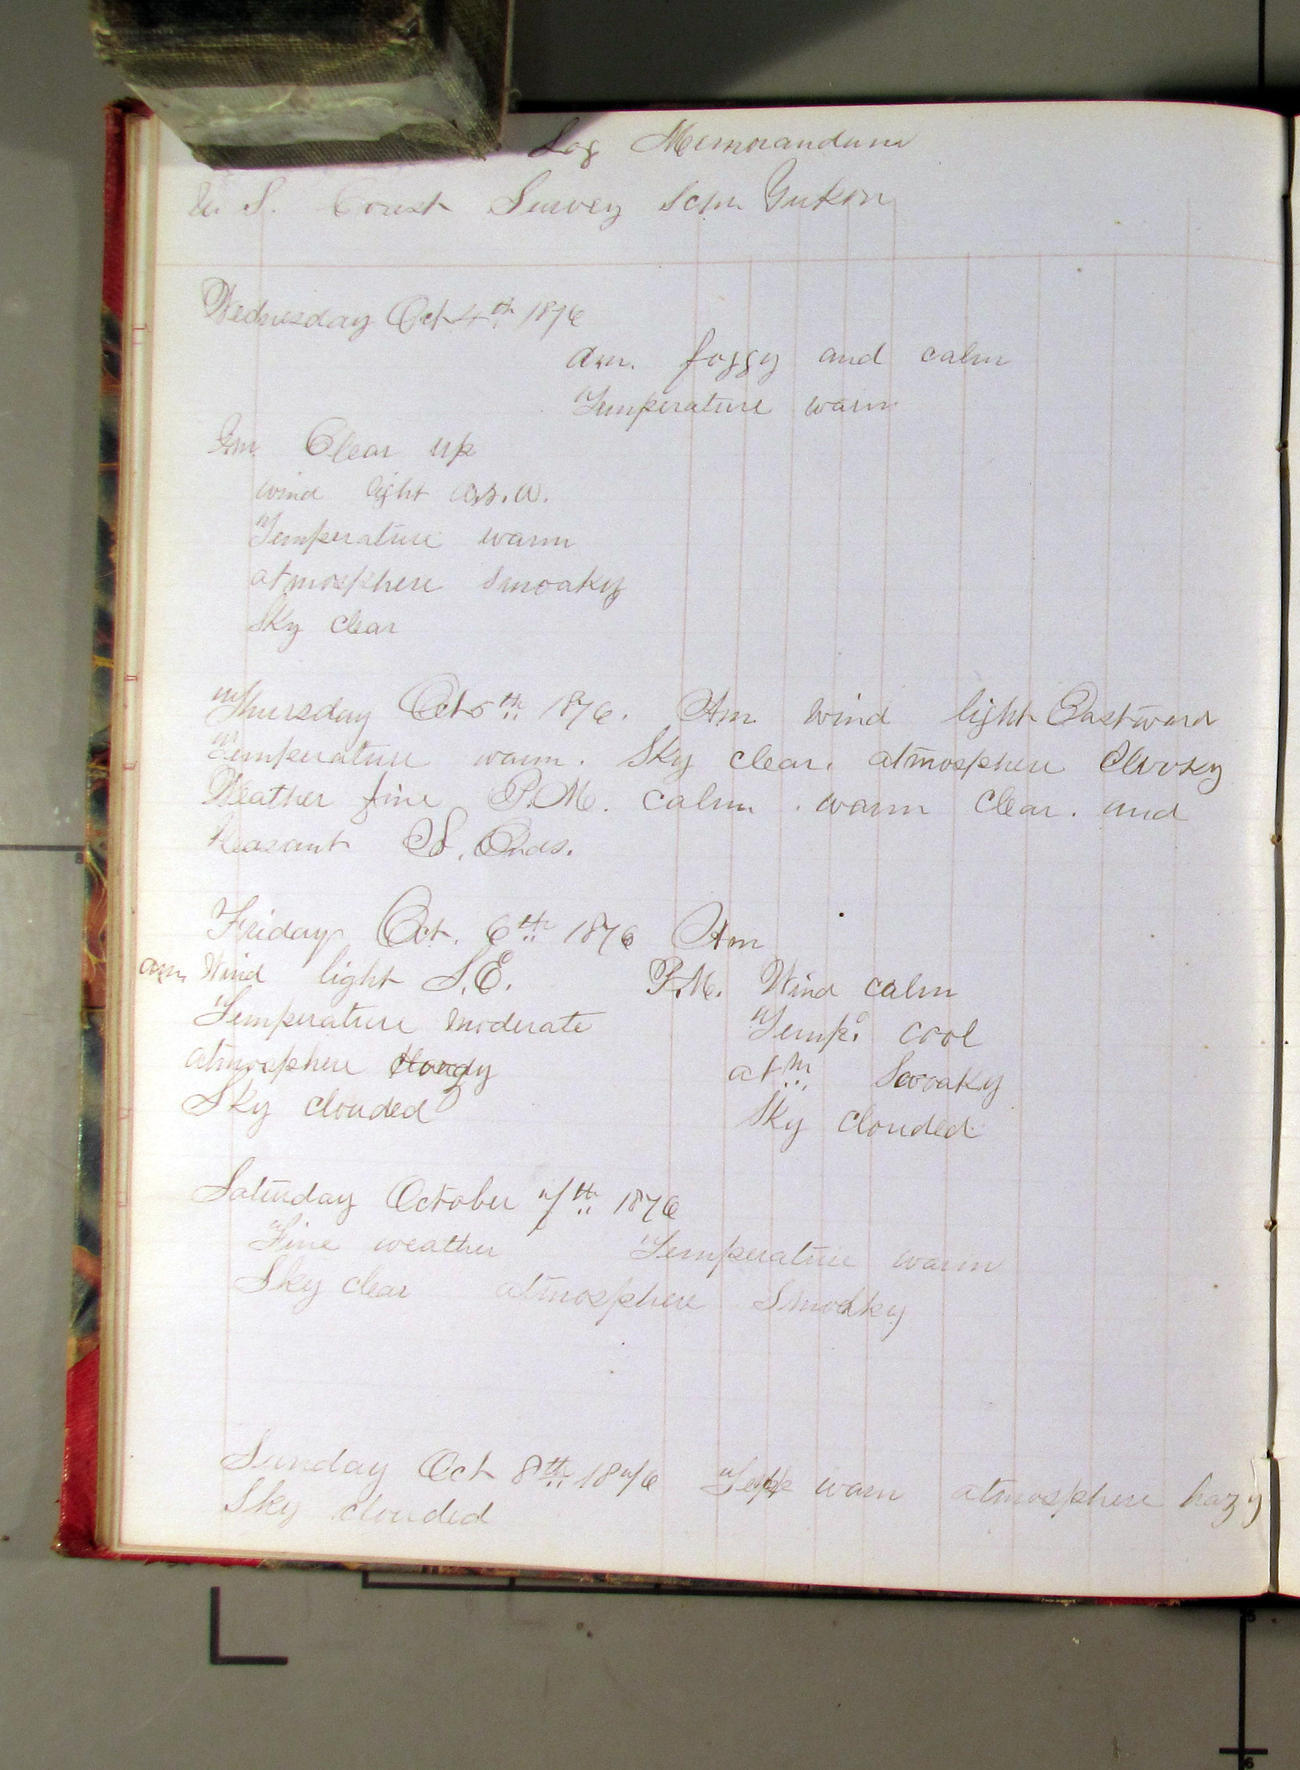 Log Memorandum
U. S. Coast Survey Schr Yukon
Wednesday Oct 4th 1876
am. foggy and calm
Temperature warm
Pm. Clear up
wind light
Temperature warm
atmosphere Smoaky
Sky clear
Thursday Oct 5th 1876. Am wind light Eastward
Temperature warm. Sky clear. atmosphere
Weather fine P.M. calm. warm clear. and
Pleasant So Ends.
Friday Oct. 6th 1876 Am
am. Wind light S.E. P.M. Wind calm
Temperature moderate Temp. cool
atmosphere atm Smoaky
Sky clouded Sky clouded
Saturday October 7th 1876
Fine weather Temperature warm
Sky clear atmosphere Smoaky
Sunday Oct 8th 1876 Temp warm atmosphere hazy
Sky clouded